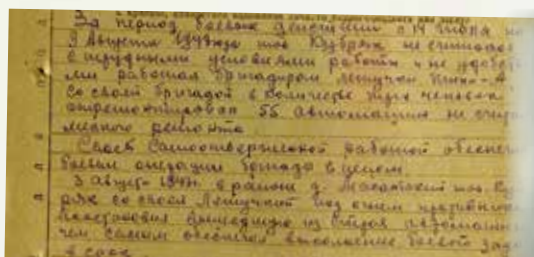 За период боевых действий с 14 июля по
9 Августа тов. Кубряк не считаясь
с трудными условиями работы и неудобст
ми работая бригадиром летучки
со своей бригадой в количестве трех человек
отремонтировал 55 автомашин не счита
мелкого ремонта.
Своей самоотверженной работой обеспеч
боевые операции бригады в целом.
3 Август 1944г. в районе д. тов. Куб
ряк со своей летучкой под огнем противника
восстановил вышедшую из строя автомашин
чем самым обеспечил выполнение боевой зада
в срок.